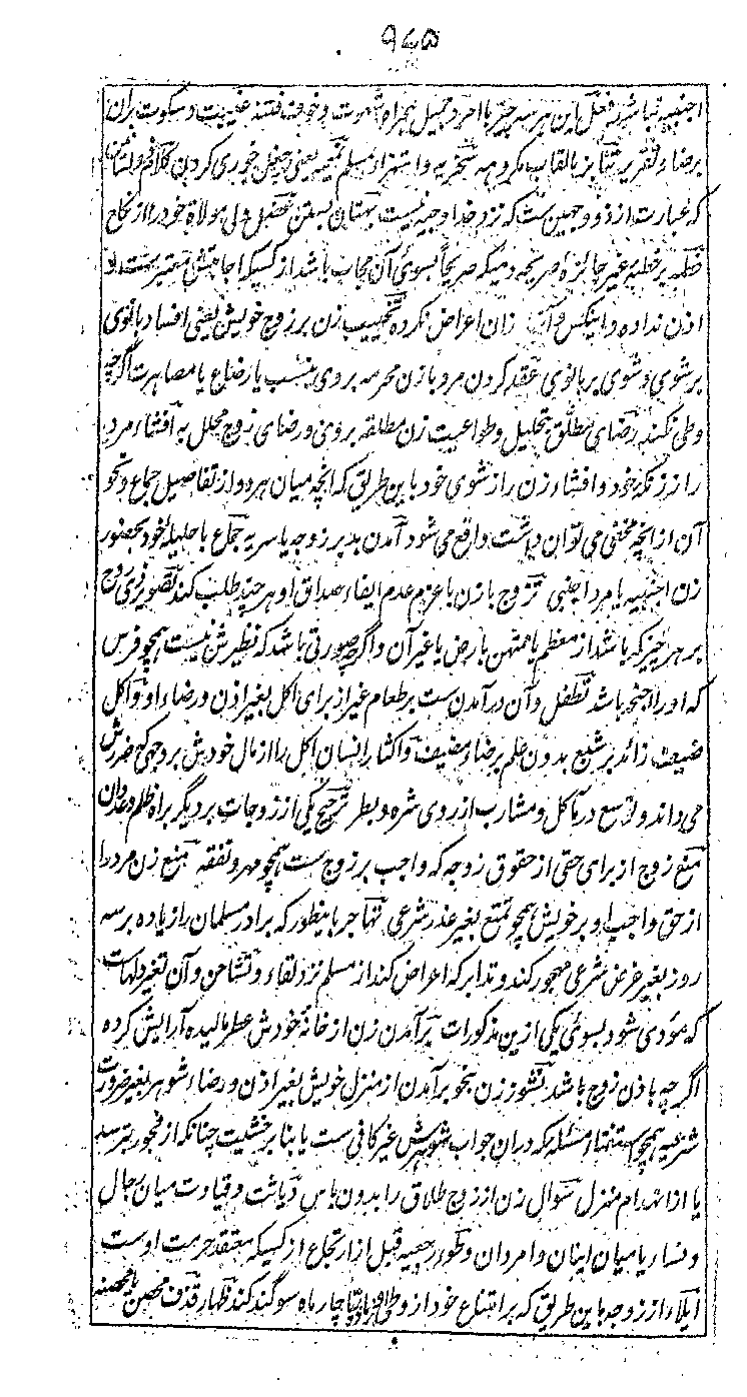 ۹۷۵
اجنبیه نباشد فعل این هر سه چیز با امرد جمیل همراه شهوت و خوف فتنه غیبت و سکوت بران
برضاء و تقریر تنابز بالقاب مکروهه سخریه و استهزاء مسلم نمیمه یعنی چغل خوری کردن کلام ذو لسانین
که عبارت از ذو وجهین ست که نزد خدا وجیه نیست بهتان بستن عضل ولی مولاة خود را از نکاح
خطبه بر خطبه غیر جائزه صریحه دمیکه صریحاً بسوی آن مجاب باشد از کسیکه اجابتش معتبرست و
اذن نداده و اینکس و آن زان اعراض نکرده تخبیب زن بر زوج خویش یعنی افساد بانوی
بر شوی و شوی بر بانوی عقد کردن مرد با زن محرمه بروی بنسب یا رضاع یا مصاهرت اگرچه
وطی نکند رضای مطلق بتحلیل و طواعیت زن مطلقه بروی و رضای زوج محلل به افشاء مرد
راز زوجه خود و افشاء زن راز شوی خود باین طریق که آنچه میان هر دو از تفاصیل جماع و نحو
آن از آنچه مخفی می توان داشت واقع می شود آمدن بدبر زوجه یا سریه جماع با حلیلۀ خود بحضور
زن اجنبیه یا مرد اجنبی تزوج با زن با عزم عدم ایفاء صداق او هر چند طلب کند تصویر ذی روح
بر هر چیز که باشد از معظم یا ممتهن بارض یا غیر آن و اگرچه صورتی باشد که نظیرش نیست همچو فرس
که او را اجنحه باشد تطفل و آن درآمدن ست بر طعام غیر از برای اکل بغیر اذن و رضاء او و اکل
ضیف زائد بر شبع بدون علم برضاء مضیف و اکثار انسان اکل را از مال خودش بر وجهی که ضررش
می داند و توسع در مآکل و مشارب از روی شره و بطر ترجیح یکی از زوجات بر دیگر براه ظلم و عدوان
منع زوج از برای حقی از حقوق زوجه که واجب بر زوج ست همچو مهر و نفقه منع زن مرد را
از حق واجب او بر خویش همچو تمتع بغیر عذر شرعی تهاجر باینطور که برادر مسلمان را زیاده بر سه
روز بغیر غرض شرعی مهجور کند و تدابر که اعراض کند از مسلم نزد لقاء و تشاحن و آن تغیر دلهاست
که مؤدی شود بسوی یکی ازین مذکورات برآمدن زن از خانۀ خودش عطر مالیده آرایش کرده
اگرچه باذن زوج باشد نشوز زن بنحو برآمدن از منزل خویش بغیر اذن و رضاء شوهر بغیر ضرورت
شرعیه همچو استفتاء مسئله که دران جواب شوهرش غیر کافی ست یا بنا بر خشیت چنانکه از فجور بترسد
یا از انهدام منزل سوال زن از زوج طلاق را بدون باس دیاثت و قیادت میان رجال
و نساء یا میان اینان و امردان وطی رجعیه قبل از ارتجاع از کسیکه معتقد حرمت اوست
ایلاء از زوجه باین طریق که بر امتناع خود از وطی زیاده تا چار ماه سوگند کند ظهار قذف محصن یا محصنه